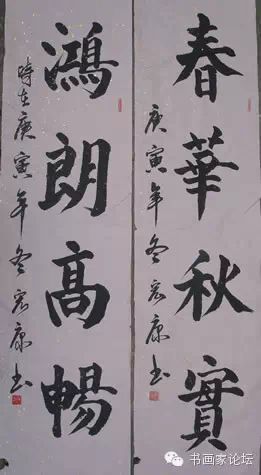 春華秋實
庚寅年冬宏康书
鴻朗高暢
時在庚寅年冬宏康书
书画家论坛